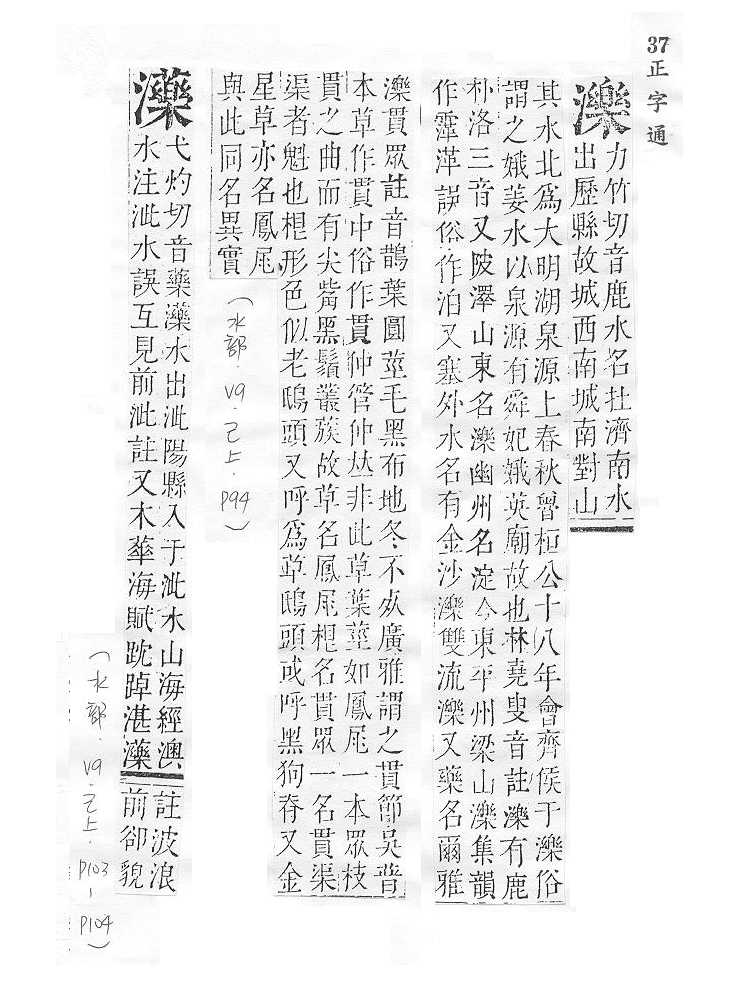 37正字通
濼
力竹切音鹿水名在濟南水
出歷縣故城西南城南對山
其水北爲大明湖泉源上春秋魯桓公十八年會齊侯于濼俗
謂之娥姜水以泉源有舜妃娥英廟故也林堯叟音註濼有鹿
朴洛三音又陂澤山東名濼幽州名淀今東平州梁山濼集韻
作𩆍䨰誤俗作泊又塞外水名有金沙濼雙流濼又藥名爾雅
濼貫眾註音鵲葉圓莖毛黑布地冬不死廣雅謂之貫節吳普
本草作貫中俗作貫仲管仲𠀤非此草葉莖如鳳尾一本眾枝
貫之曲而有尖觜黑鬚叢蔟故草名鳳尾根名貫眾一名貫渠
渠者魁也根形色似老鴟頭又呼爲草鴟頭或呼黑狗脊又金
星草亦名鳳尾
與此同名異實
(水部.V9.己上.P94)
瀿
弋灼切音藥瀿水出泚陽縣入于泚水山海經澳
水注泚水誤互見前泚註又木華海賦跐踔湛瀿
註波浪
前卻貌
(水部.V9.己上.P103-P104)